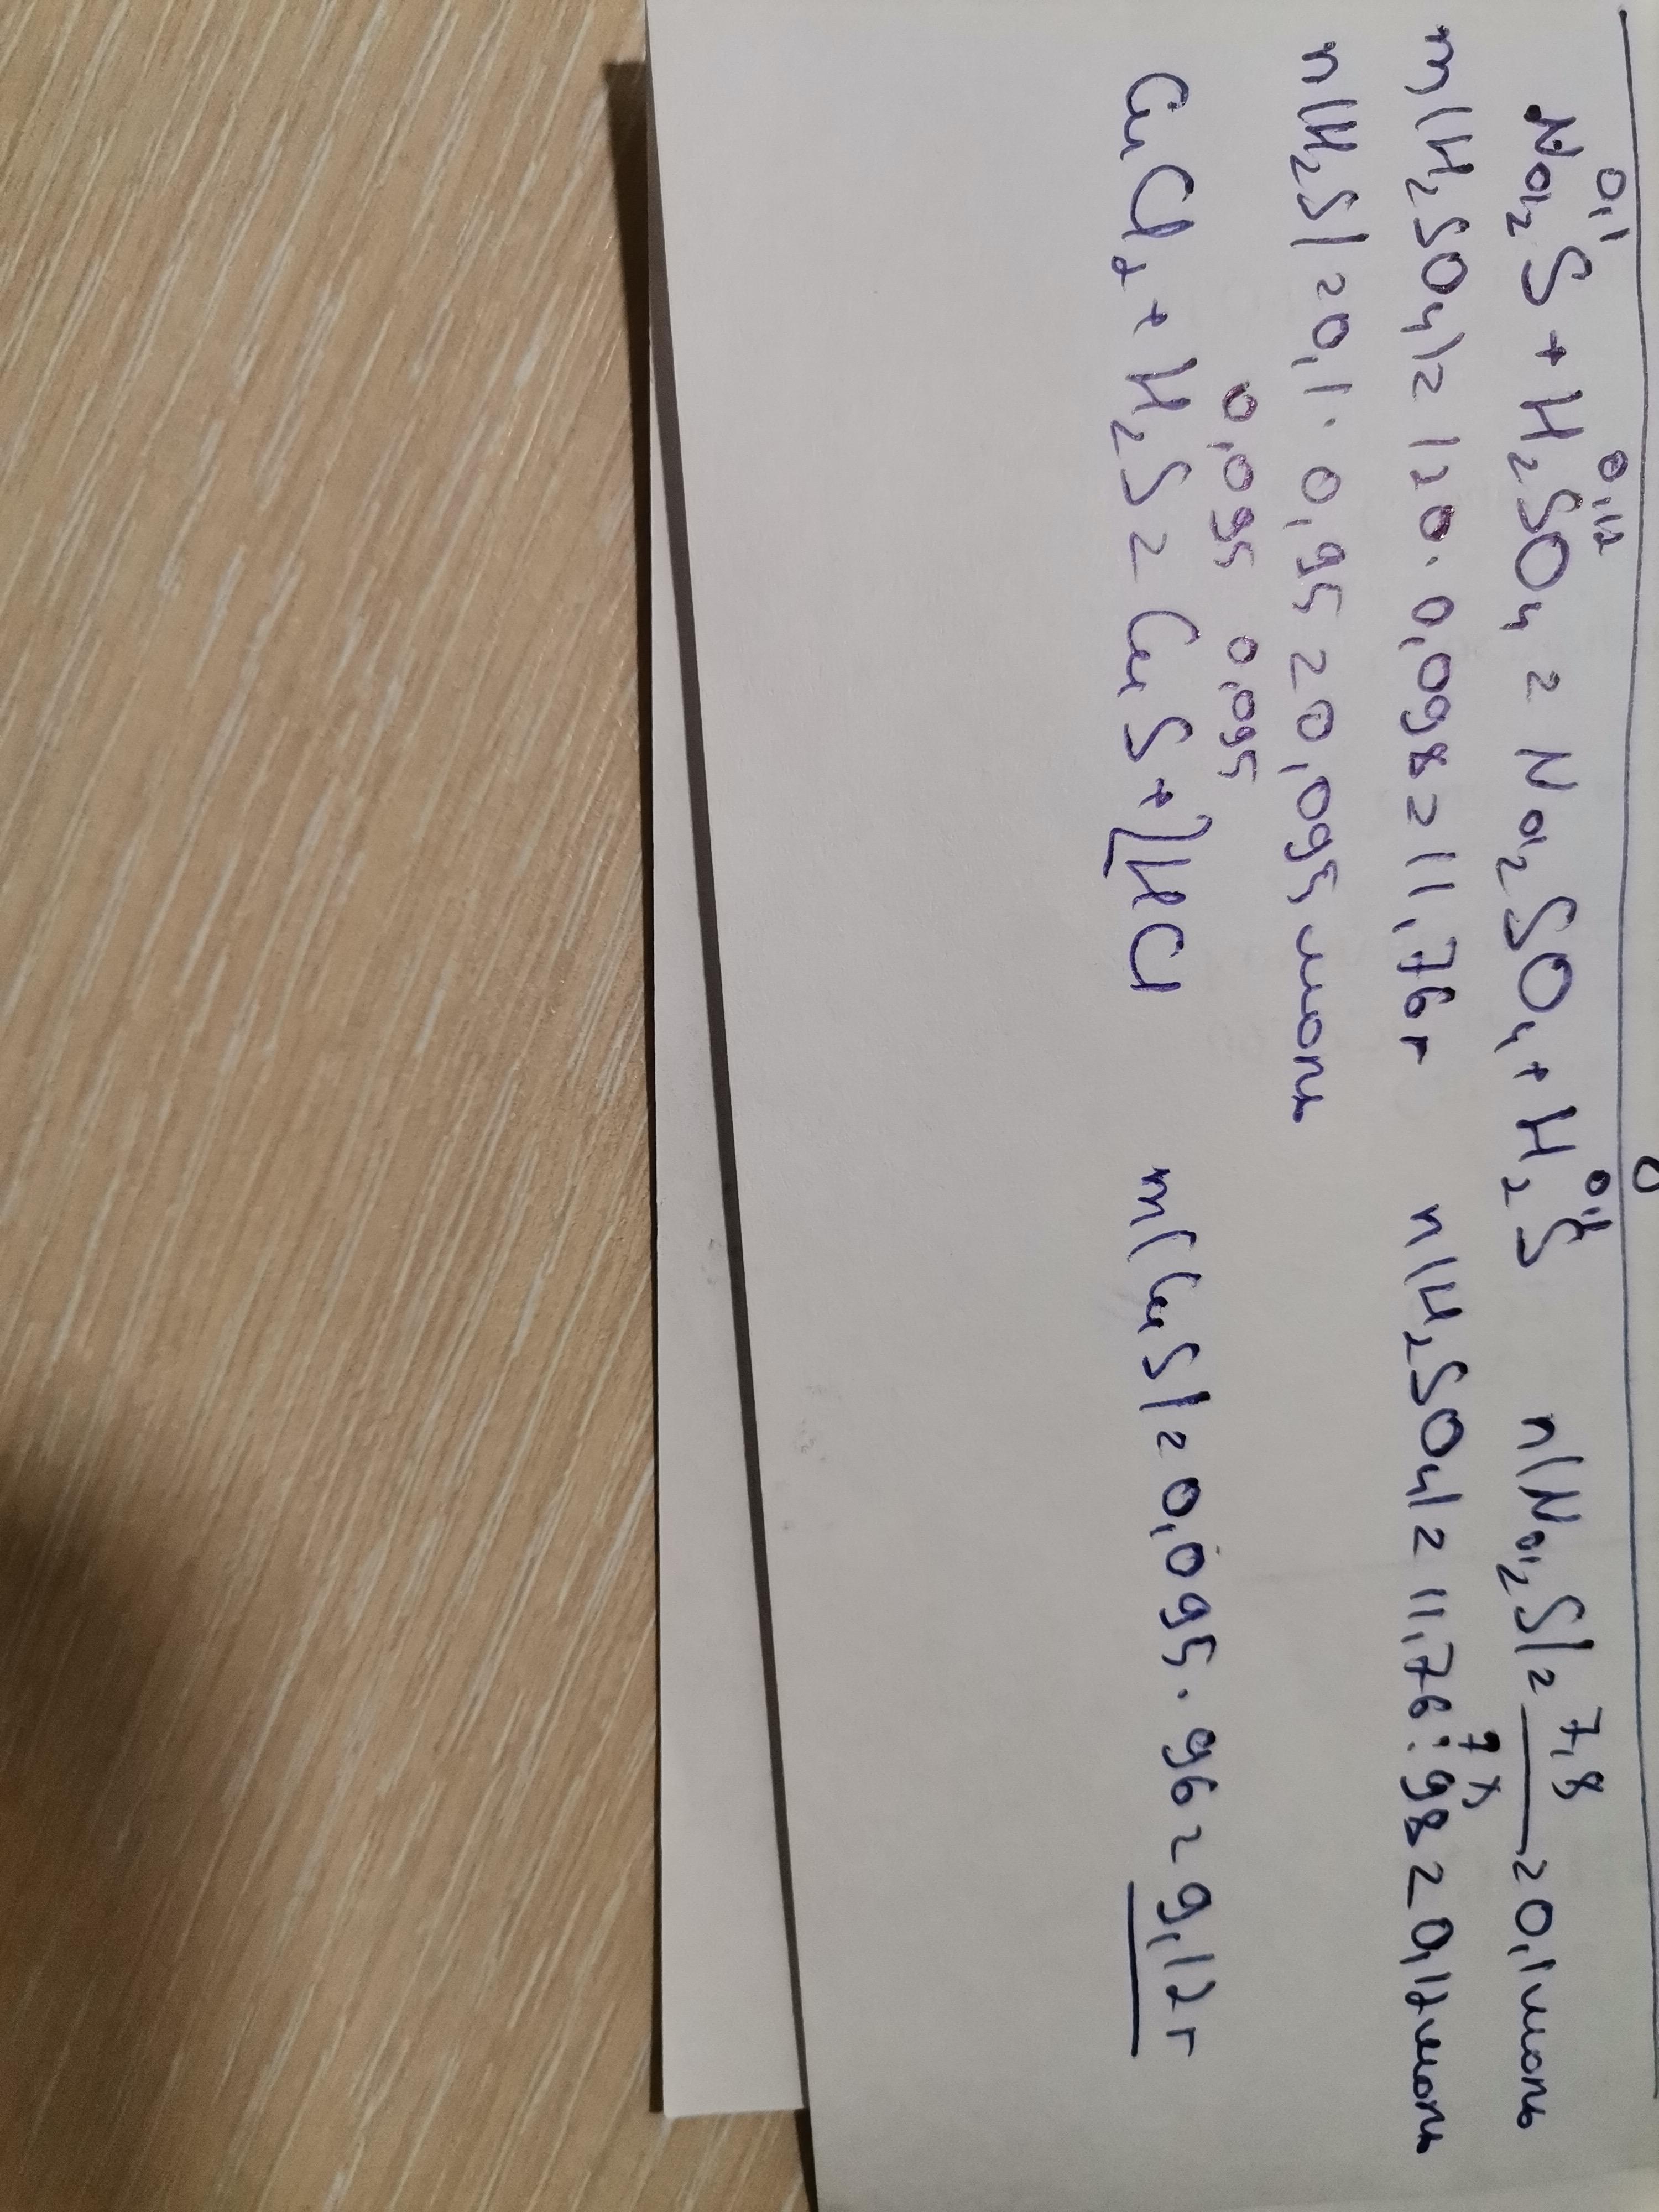 0,1 0,12 0,1
Na₂S + H₂SO₄ = Na₂SO₄ + H₂S n(Na₂S) = 7,8/78 = 0,1 моль
m(H₂SO₄) = 120 · 0,098 = 11,76 г n(H₂SO₄) = 11,76 : 98 = 0,12 моль
n(H₂S) = 0,1 · 0,95 = 0,095 моль
0,095 0,095
CuCl₂ + H₂S = CuS + 2HCl m(CuS) = 0,095 · 96 = 9,12 г